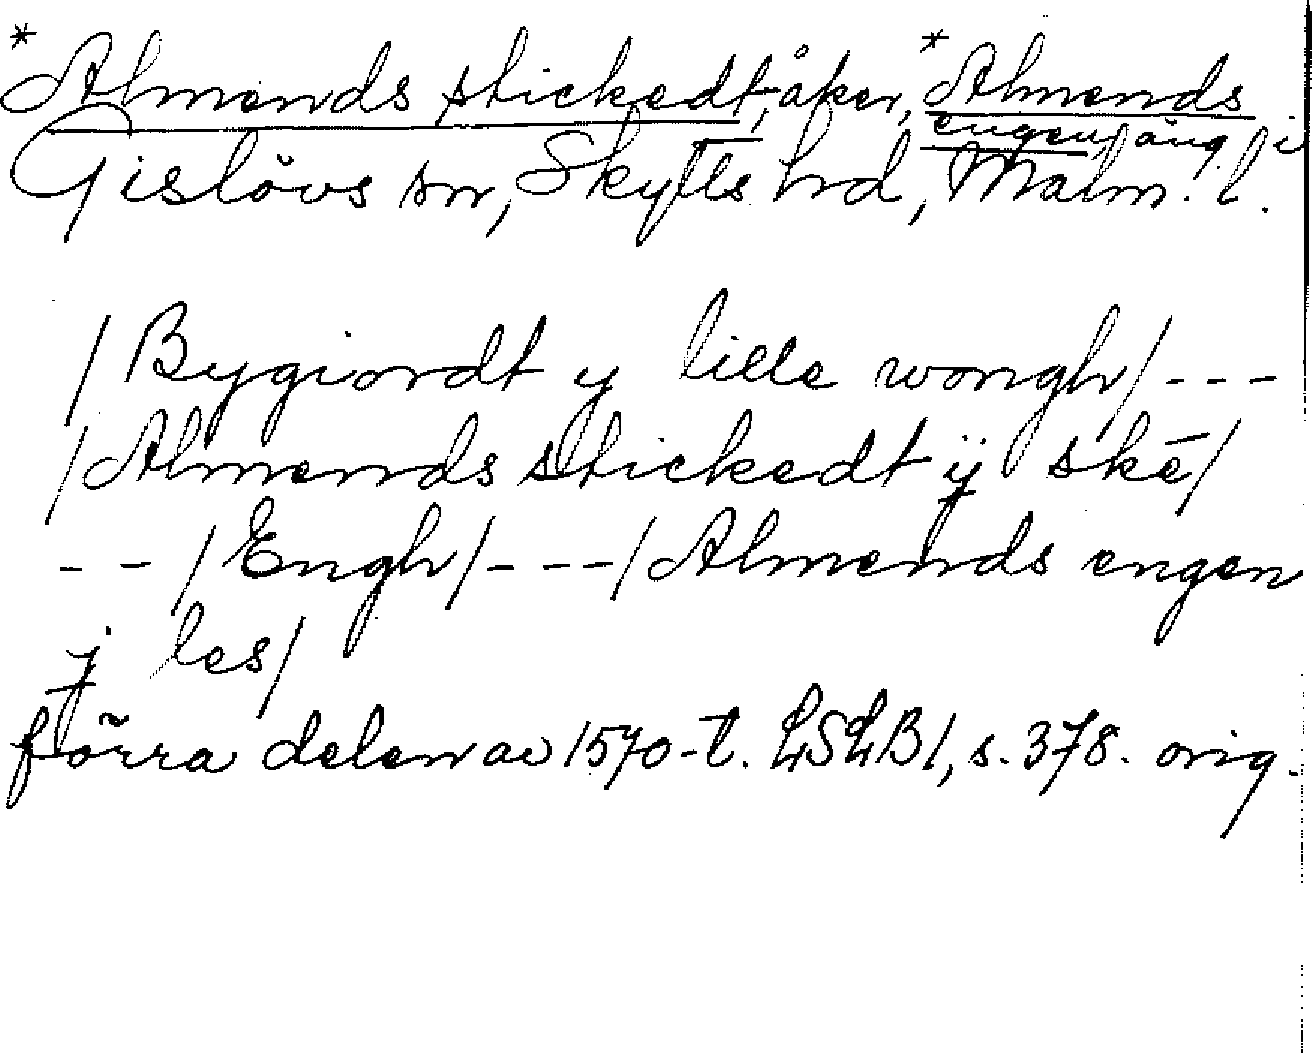 *Almends stickedt, åker, *Almends
engen, äng i
Gislövs sn, Skytts hd, Malm. l.
/Bygiordt y lille wongh/---
/Almends stickedt ÿ skē/
--/Engh/---/Almends engen
j les/
förra delen av 1570-t. LSLB1, s. 378. orig.